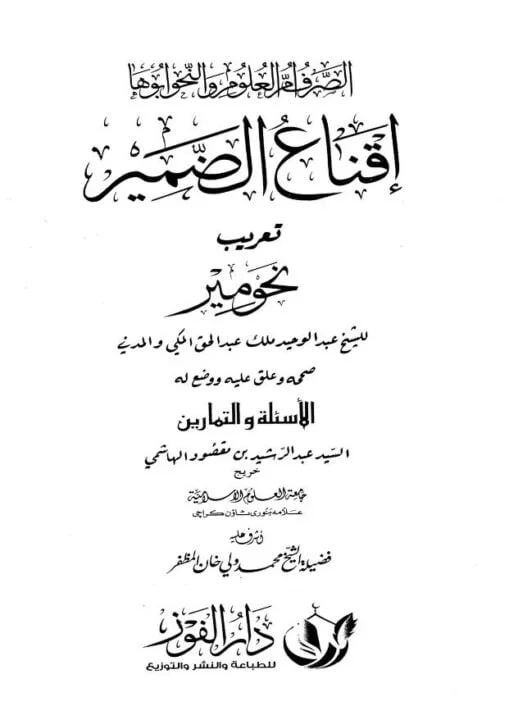 الصرف أم العلوم والنحو أبوها
إقناع الضمير
تعريب
نحومير
للشيخ عبد الوحيد ملك عبد الحق المكي والمدني
صححه وعلق عليه ووضع له
الأسئلة والتمارين
السيد عبد الرشيد بن مقصود الهاشمي
خريج
جامعة العلوم الإسلامية
علامه بنوری ٹاؤن کراچی
أشرف عليه
فضيلة الشيخ محمد ولي خان المظفر
دار الفوز
للطباعة والنشر والتوزيع